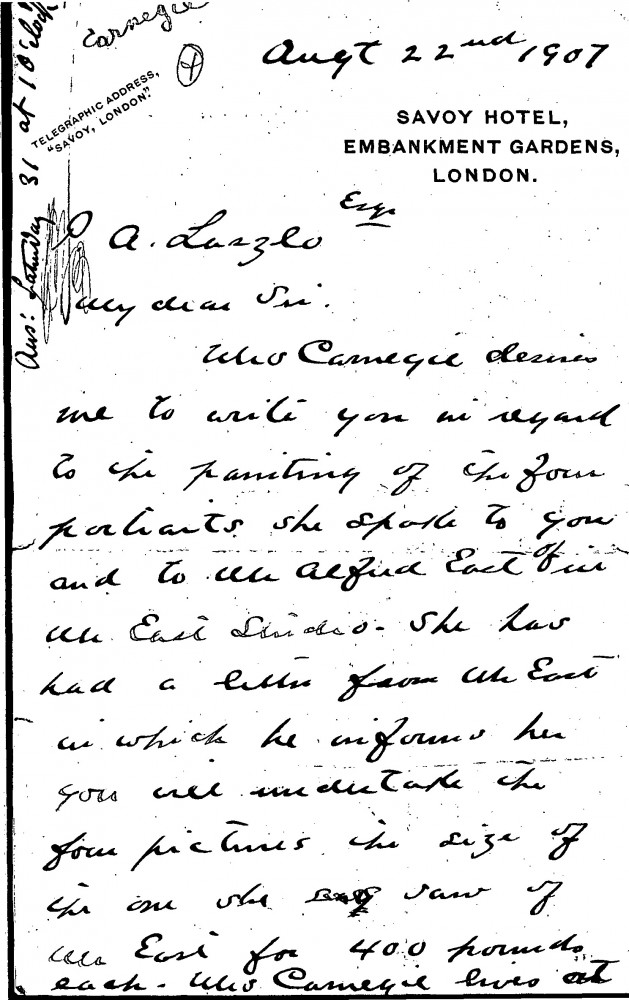 Carnegie
4
Ans: Saturday 31 at 1 O'Clock
TELEGRAPHIC ADDRESS,
"SAVOY, LONDON."
Augt 22nd 1907
SAVOY HOTEL,
EMBANKMENT GARDENS,
LONDON.
A. Laszlo Esqr
My dear Sir.
Mrs Carnegie desires
me to write you in regard
to the painting of the four
portraits she spoke to you
and to Mr Alfred East of in
Mr East Studio. She has
had a letter from Mr East
in which he informs her
you will undertake the
four pictures the size of
the one she saw of
Mr East for 400 pounds
each. Mrs Carnegie lives at